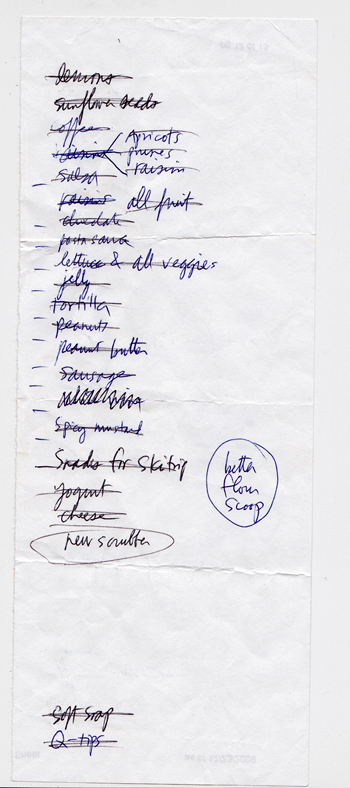 lemons
sunflower seeds
coffee
raisins
Apricots
prunes
raisins
salsa
raisins all fruit
chocolate
pasta sauce
lettuce & all veggies
jelly
tortilla
peanuts
peanut butter
sausage
spicy mustard
Snacks for Ski trip
yogurt
cheese
new scrubber
better
flour
scoop
Soft Soap
Q-tips